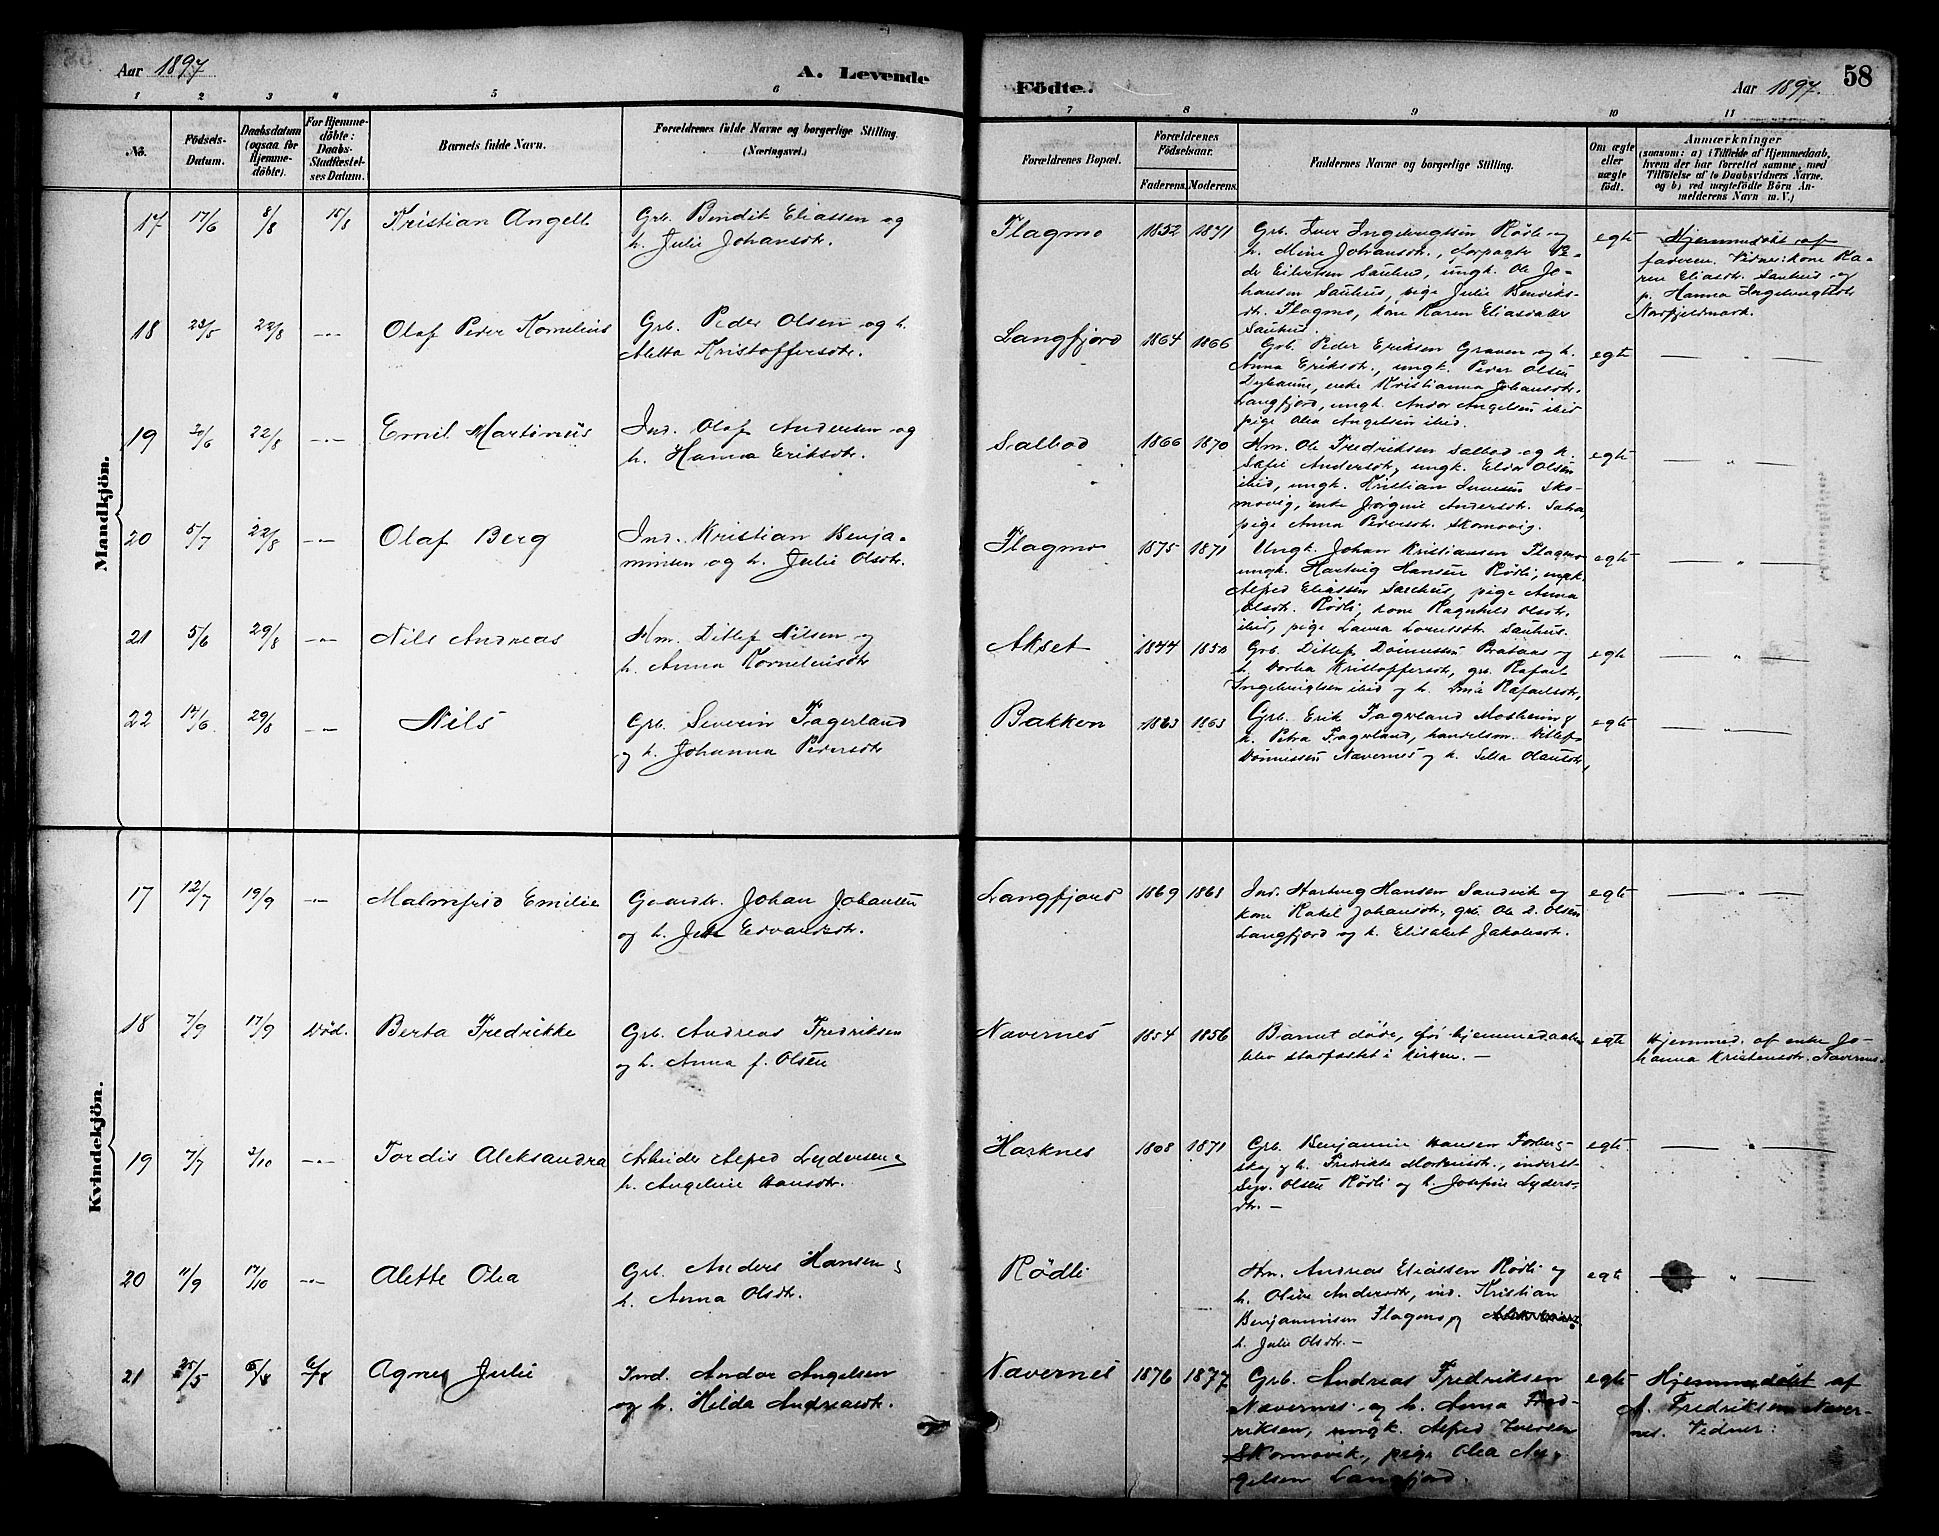 Aar 1897
A. Levende
Födte.
Aar 1897.
58
1 2 3 4 5 6 7 8 9 10 11
No.
Födsels-
Datum.
Daabsdatum
(ogsaa for
Hjemme-
döbte).
For Hjemme-
döbte:
Daabs-
Stadfæstel-
ses Datum.
Barnets fulde Navn.
Forældrenes fulde Navne og borgerlige Stilling.
(Næringsvei.)
Forældrenes Bopæl.
Forældrenes
Födselsaar.
Faderens. Moderens.
Faddernes Navne og borgerlige Stilling.
Om ægte
eller
uægte
födt.
Anmærkninger
(saasom: a) i Tilfælde af Hjemmedaab,
hvem der har forrettet samme, med
Tilföielse af to Daabsvidners Navne,
og b) ved uægtefödte Börn An-
melderens Navn m. V.)
Mandkjön.
17 17/6 8/8 15/8 Kristian Angell
Grb. Bendik Eliassen og
h. Julie Johansdr.
Flagmo 1852 1871
Grb. Iver Ingebrigtsen Rødli og
h. Mine Johansdr., forpagter Pe-
der Eilertsen Sauhus, ungk. Ole Jo-
hansen Sauhus, pige Julie Bendiks-
dr. Flagmo, kone Karen Eliasdatter
Sauhus.
egte
Hjemmedøbt af
faderen. Vidner: kone Ka-
ren Eliasdr. Sauhus og
p. Hanna Ingebrigtsdr
18 23/5 22/8 -"- Olaf Peder Kornelius
Grb. Peder Olsen og h.
Aletta Kristoffersdr.
Langfjord 1864 1866
Grb. Peder Eriksen Graven og h.
Anna Eriksdr., ungk. Peder Olsen
enke Kristianna Johansdr.
Langfjord, ungk. Andor Angelsen ibid
pige Olea Angelsen ibid.
egte — " —
19 20/6 22/8 -"- Emil Martinius
Ind. Olaf Andersen og
h. Hanna Eriksdr.
Salbod 1866 1870
Hm. Ole Fredriksen Salbod og h.
Sofie Andersdr, ungk. Eldor Olsen
ibid, ungk. Kristian Iversen Sko-
movig, enke Jørgine Andersdr.
pige Anna Pedersdr. Skomovig.
egte — " —
20 5/7 22/8 -"- Olaf Berg
Ind. Kristian Benja-
minsen og h. Julie Olsdr.
Flagmo 1875 1871
Ungk. Johan Kristiansen Flagmo
ungk. Hartvig Hansen Rødli, ungk.
Alfred Eliassen Sauhus, pige Anna
Olsdr. Rødli, kone Ragnhild Olsdr.
ibid, pige Laura Lorntsdr. Sauhus.
egte — " —
21 5/6 29/8 -"- Nils Andreas
Hm. Ditlef Nilsen og
h. Anna Korneliusdr
Akset 1844 1850
Grb. Ditlef Dønnessen Brataas og
h. Dorthea Kristoffersdr, grb. Rafael
Ingebrigtsen ibid og h. Rafaelsdr,
egte — " —
22 14/6 29/8 -"- Nils
Grb. Severin Fagerland
og h. Johanna Pedersdr
Bakken 1863 1863
Grb. Erik Fagerland Mosheim &
h. Petra Fagerland, handelsm. Ditlef
Dønnessen Navernes og h. Olausdr,
egte — " —
Kvindekjön.
17 12/7 19/9 -"- Malmfrid Emilie
Gaardbr. Johan Johansen
og h. Edvardsdr.
Langfjord 1869 1868
Ind. Hartvig Hansen Sandvik og
kone Rakel Johansdr, grb. Ole L. Olsen
Langfjord og h. Elisabet Jakobsdr.
egte — " —
18 7/9 17/9 Død. Berta Fredrikke
Grb. Andreas Fredriksen
og h. Anna f. Olsen
Navernes 1854 1856
Barnet døde, før hjemmedaaben
blev stadfæstet i kirken. —
egte
Hjemmed. af enke Jo-
hanna Kristensdr. Navernes.
19 7/7 3/10 -"- Tordis Aleksandra
Arbeider Alfred Lydersen og
h. Angeline Hansdr.
Harknes 1868 1871
Grb. Benjamin Hansen Forberg-
skog og h. Fredrikke inderst
Sigv. Olsen Rødli og h. Josefine Lyders-
dtr. —
egte. — " —
20 11/9 17/10 -"- Alette Olea
Grb. Anders Hansen &
h. Anna Olsdr.
Rödli
Hm. Andreas Eliassen Rødli og
h. Oline Andersdr, ind. Kristian
Benjaminsen Flagmo og
h. Julie Olsdr. —
egte — " —
21 25/5 6/8 Agnes Julie
Ind. Andor Angelsen
og h. Hilda Andreasdr.
Navernes 1876 1877
Grb. Andreas Fredriksen
Navernes og h. Anna Fred-
riksen, ungk. Alfred Iversen
Skomovik, pige Olea An-
gelsen Langfjord.
egte
Hjemmedøbt af
A. Fredriksen Naver-
nes. Vidner: